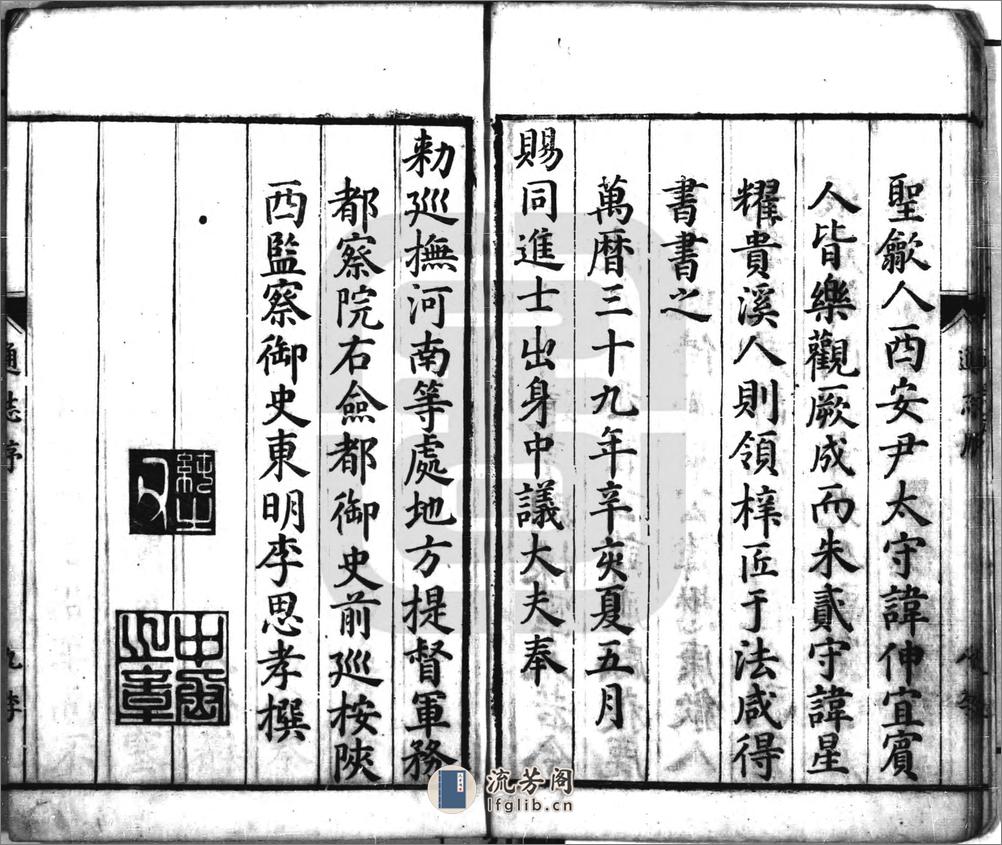 聖歙人西安尹太守諱伸宜賓
人皆樂觀厥成而朱貳守諱星
耀貴溪人則領梓匠于法咸得
書書之
萬曆三十九年辛亥夏五月
賜同進士出身中議大夫奉
勅巡撫河南等處地方提督軍務
都察院右僉都御史前巡按陝
西監察御史東明李思孝撰
通誌序
流芳阁
lfglib.cn